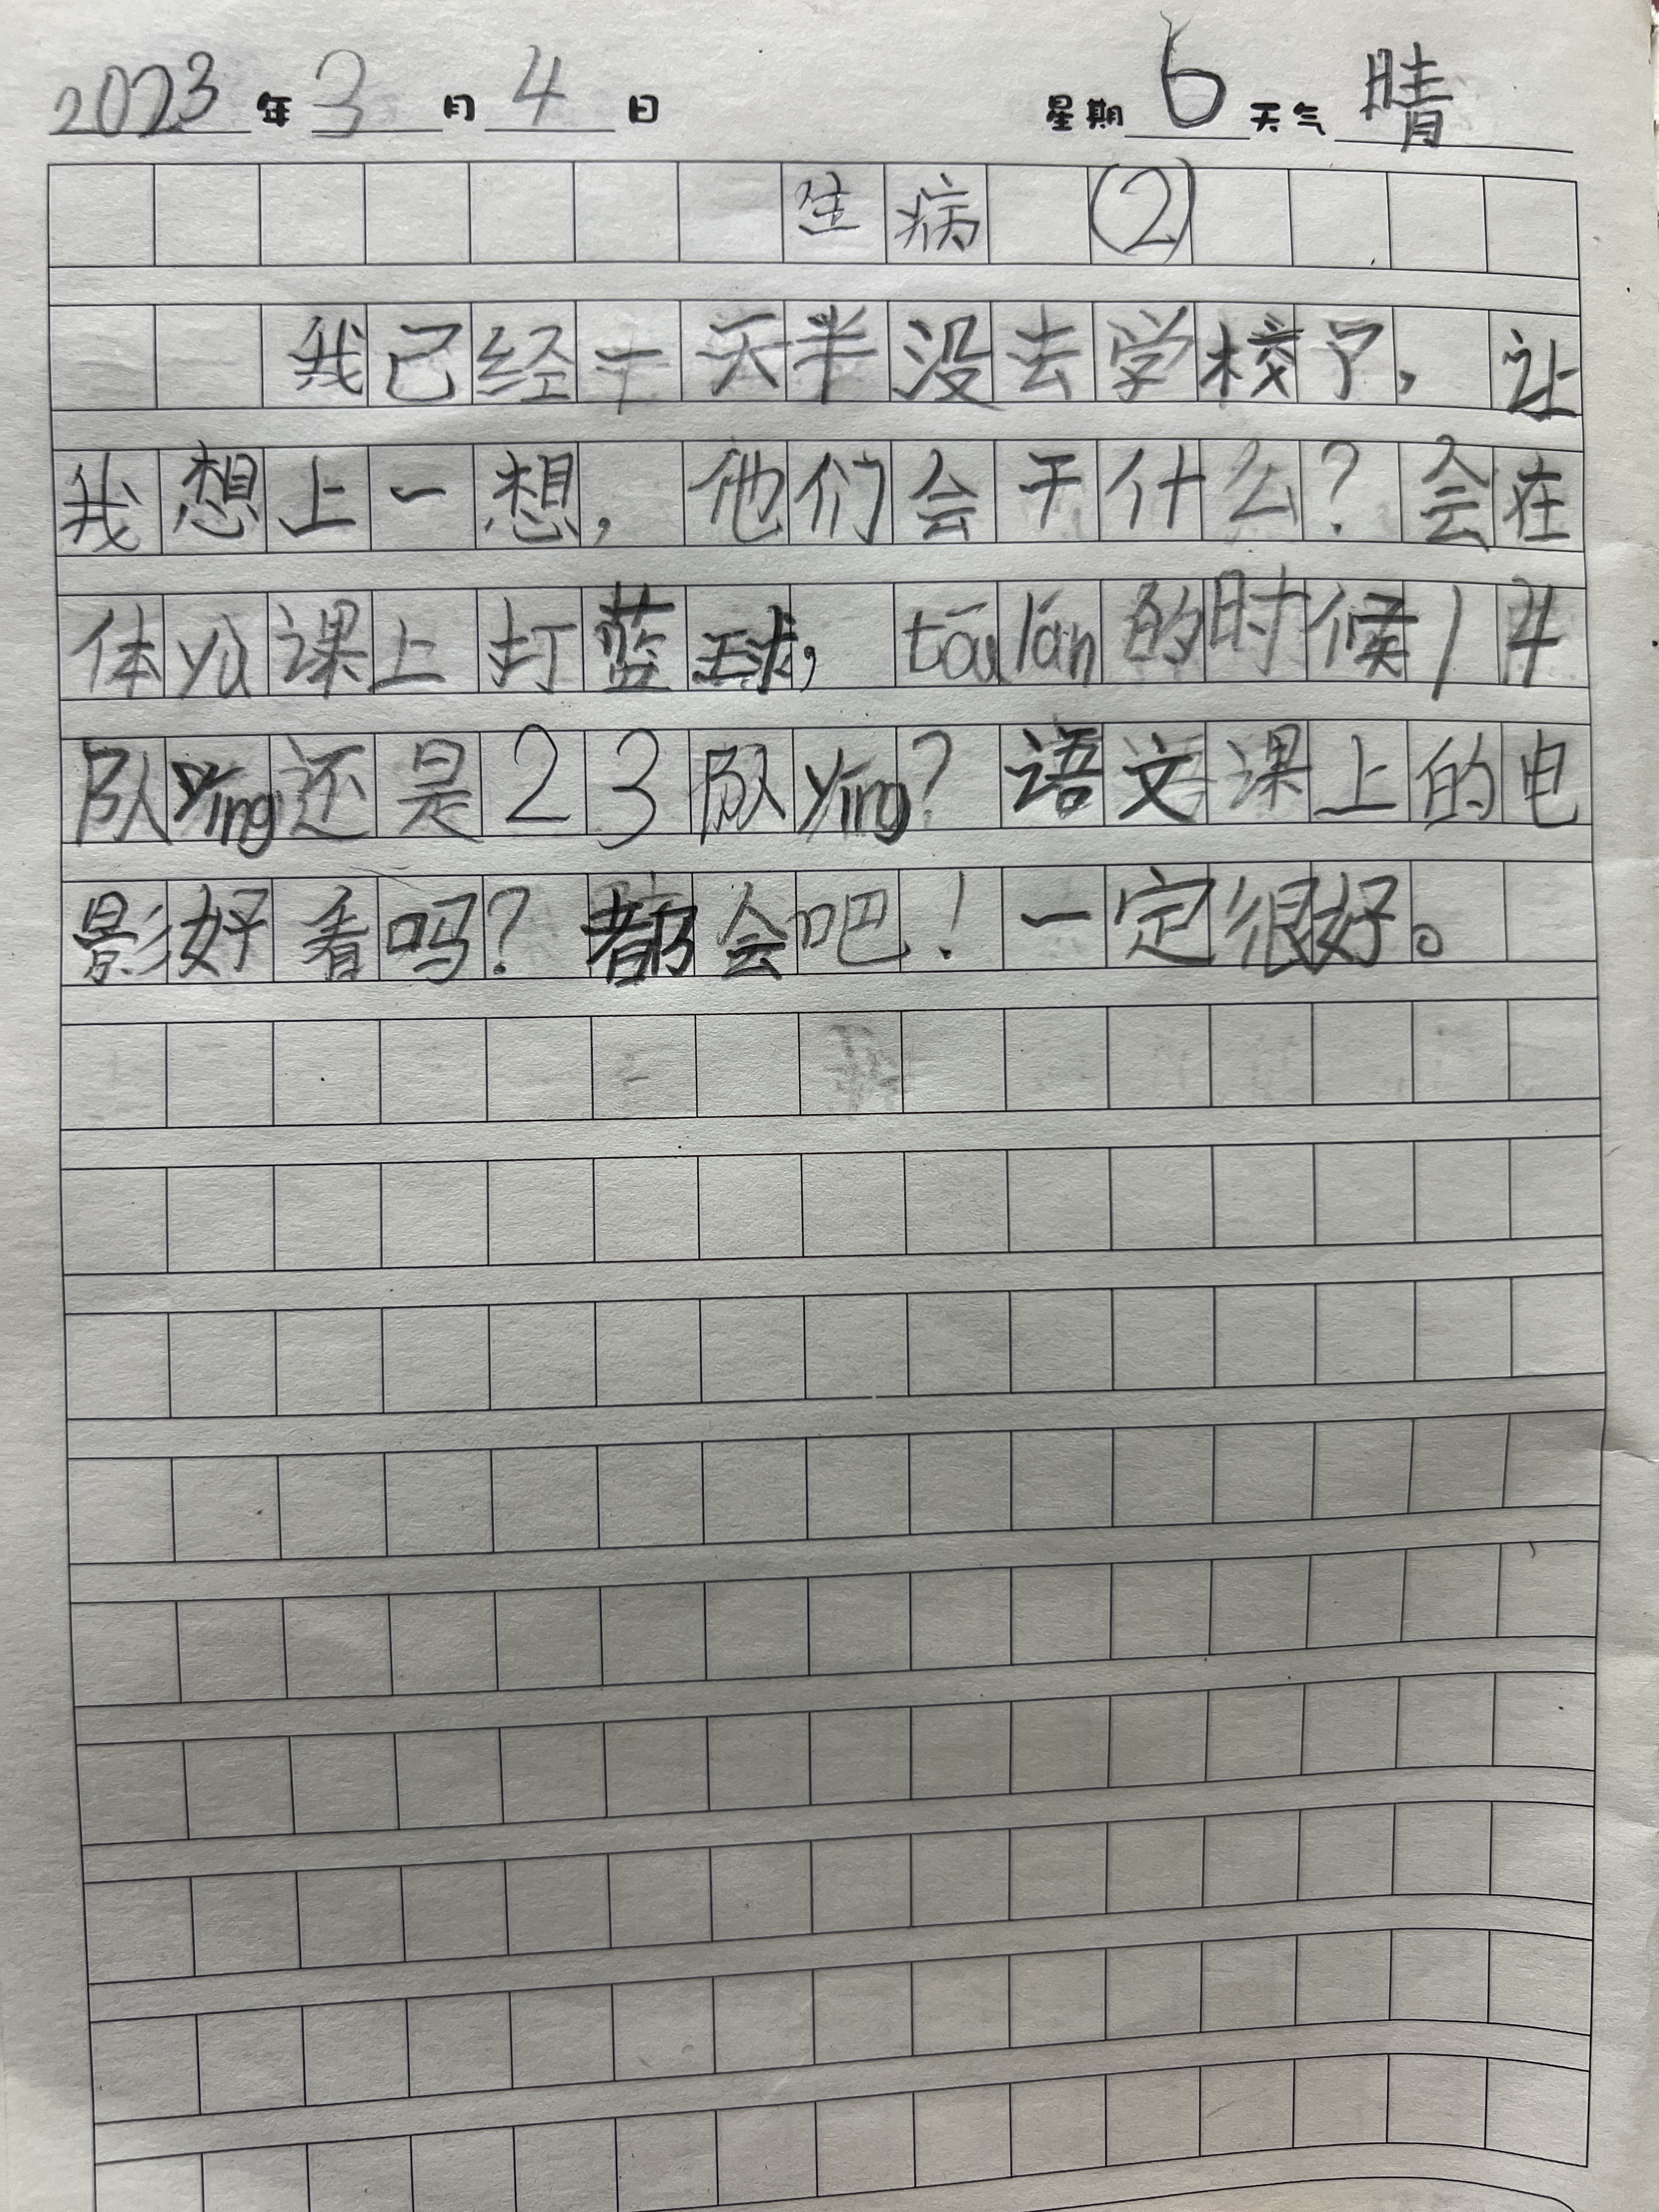 2023年3月4日 星期6天气晴
生病 (2)
我已经一天半没去学校了，让
我想上一想，他们会干什么？会在
体yù课上打蓝球，tóulán的时候14
队yíng还是23队yíng？语文课上的电
影好看吗？都会吧！一定很好。